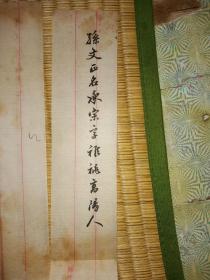 孫文正名承宗字稚繩高陽人